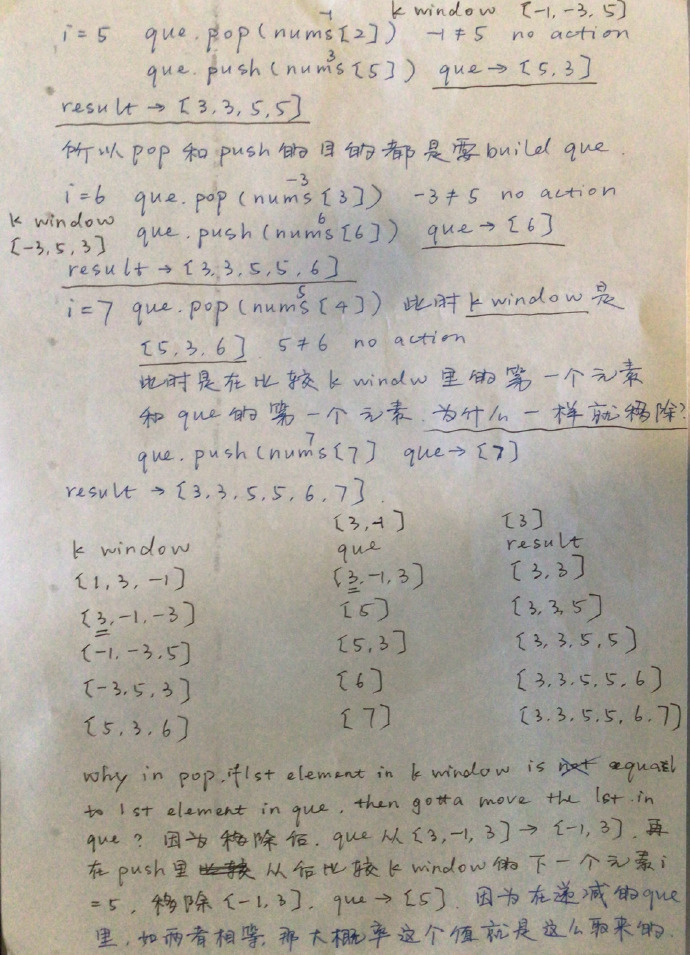 k window [-1, -3, 5]
-1
i=5 que.pop(nums[2]) -1≠5 no action
3
que.push(nums[5]) que→[5,3]
result→[3,3,5,5]
所以pop和push的目的都是要build que.
-3
i=6 que.pop(nums[3]) -3≠5 no action
k window
6
[-3,5,3] que.push(nums[6]) que→[6]
result→[3,3,5,5,6]
5
i=7 que.pop(nums[4]) 此时k window是
[5,3,6] 5≠6 no action
此时是在比较k windw里的第一个元素
和que的第一个元素.为什么一样就移除?
7
que.push(nums[7] que→[7]
result→[3,3,5,5,6,7].
[3,-1] [3]
k window que result
[1,3,-1] [3,-1,3] [3,3]
[3,-1,-3] [5] [3,3,5]
[-1,-3,5] [5,3] [3,3,5,5]
[-3,5,3] [6] [3,3,5,5,6]
[5,3,6] [7] [3,3,5,5,6,7]
why in pop, if 1st element in k window is not equal
to 1st element in que, then gotta move the 1st in
que? 因为移除后. que从[3,-1,3]→[-1,3]. 再
在push里比较从后比较k window的下一个元素i
=5, 移除[-1,3]. que→[5]. 因为在递减的que
里,如两者相等,那大概率这个值就是这么取来的.